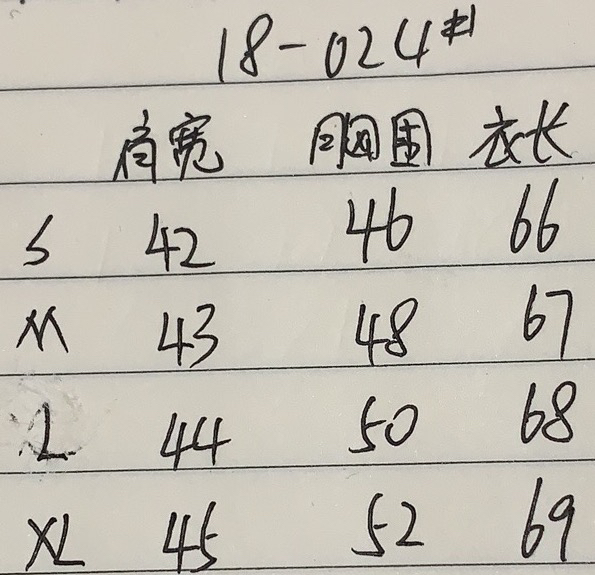 18-024#
肩宽 胸围 衣长
S 42 46 66
M 43 48 67
L 44 50 68
XL 45 52 69